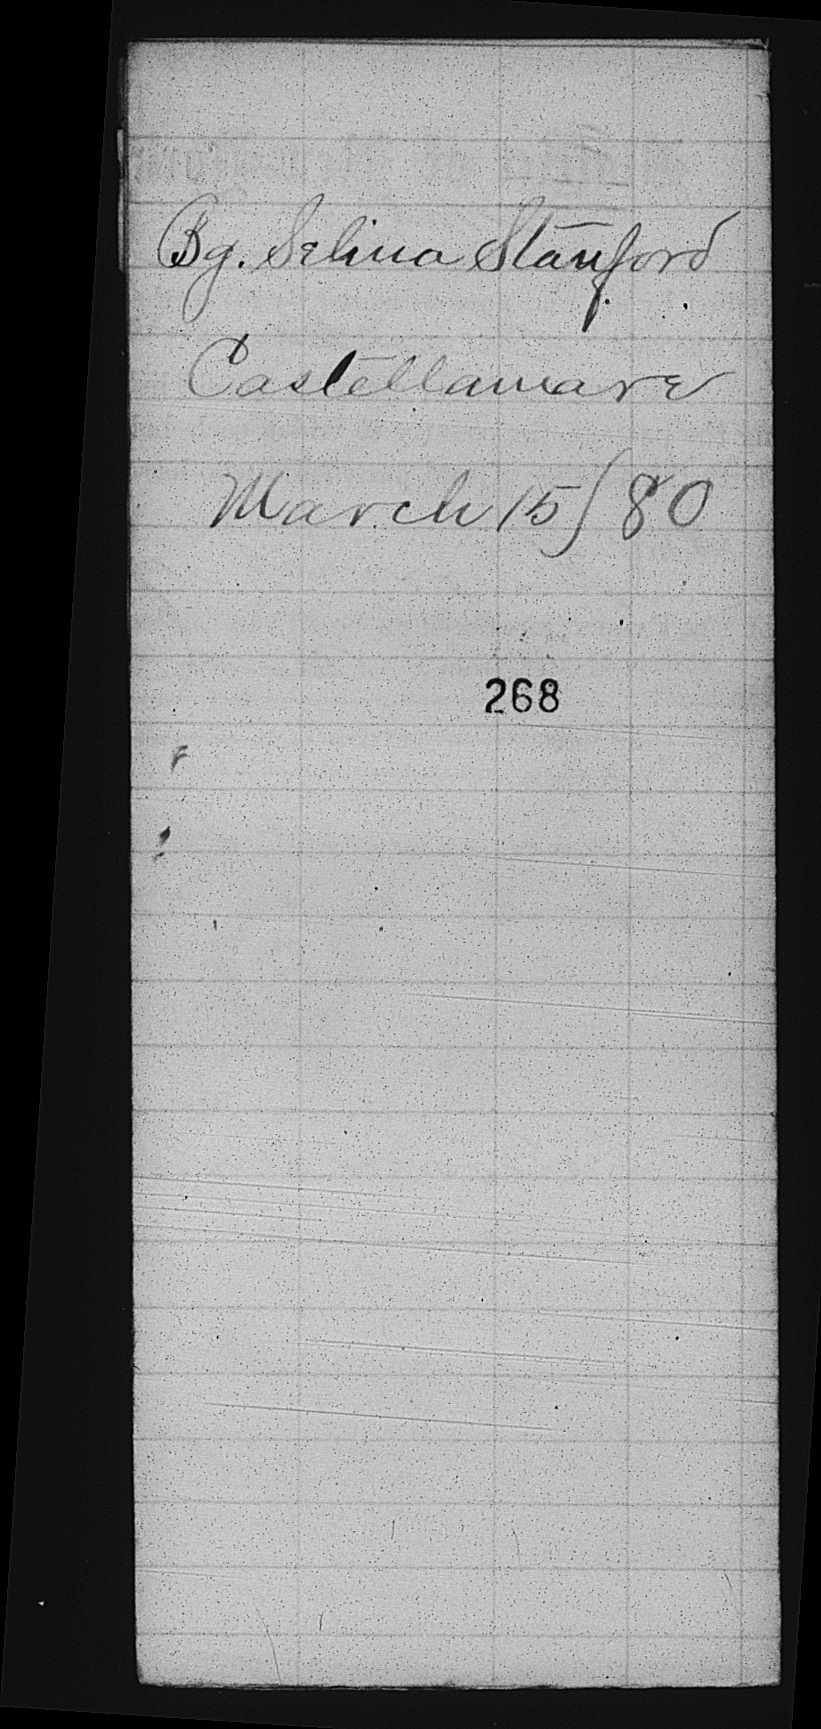 Bg. Selina Stanford
Castellamare
March 15/80
268